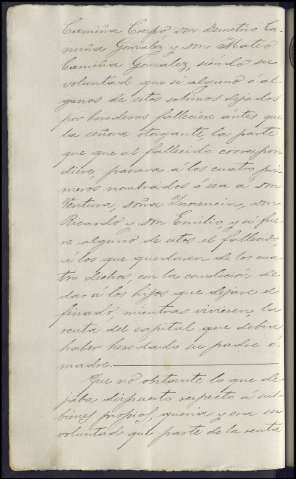 Camiña Crespo, don Demetrio Ca-
miña Gonzalez y don Mateo
Camiña Gonzalez, siendo su
voluntad que si alguno ó al-
gunos de estos sobrinos dejados
por herederos falleciere antes que
la señora otorgante la parte
que que al fallecido correspon-
diere, pasara á los cuatro pri-
meros nombrados ó sea a don
Ventura, doña Florencia, don
Ricardo y don Emilio, y si fue-
re alguno de estos el fallecido
á los que quedaren de los cua-
tro dichos, con la condicion de
dar á los hijos que dejare el
finado, mientras vivieren, la
renta del capital que debia
haber heredado su padre ó
madre.
Que no obstante lo que de-
jaba dispuesto respecto á sus
bienes propios, queria y era su
voluntad que parte de la renta